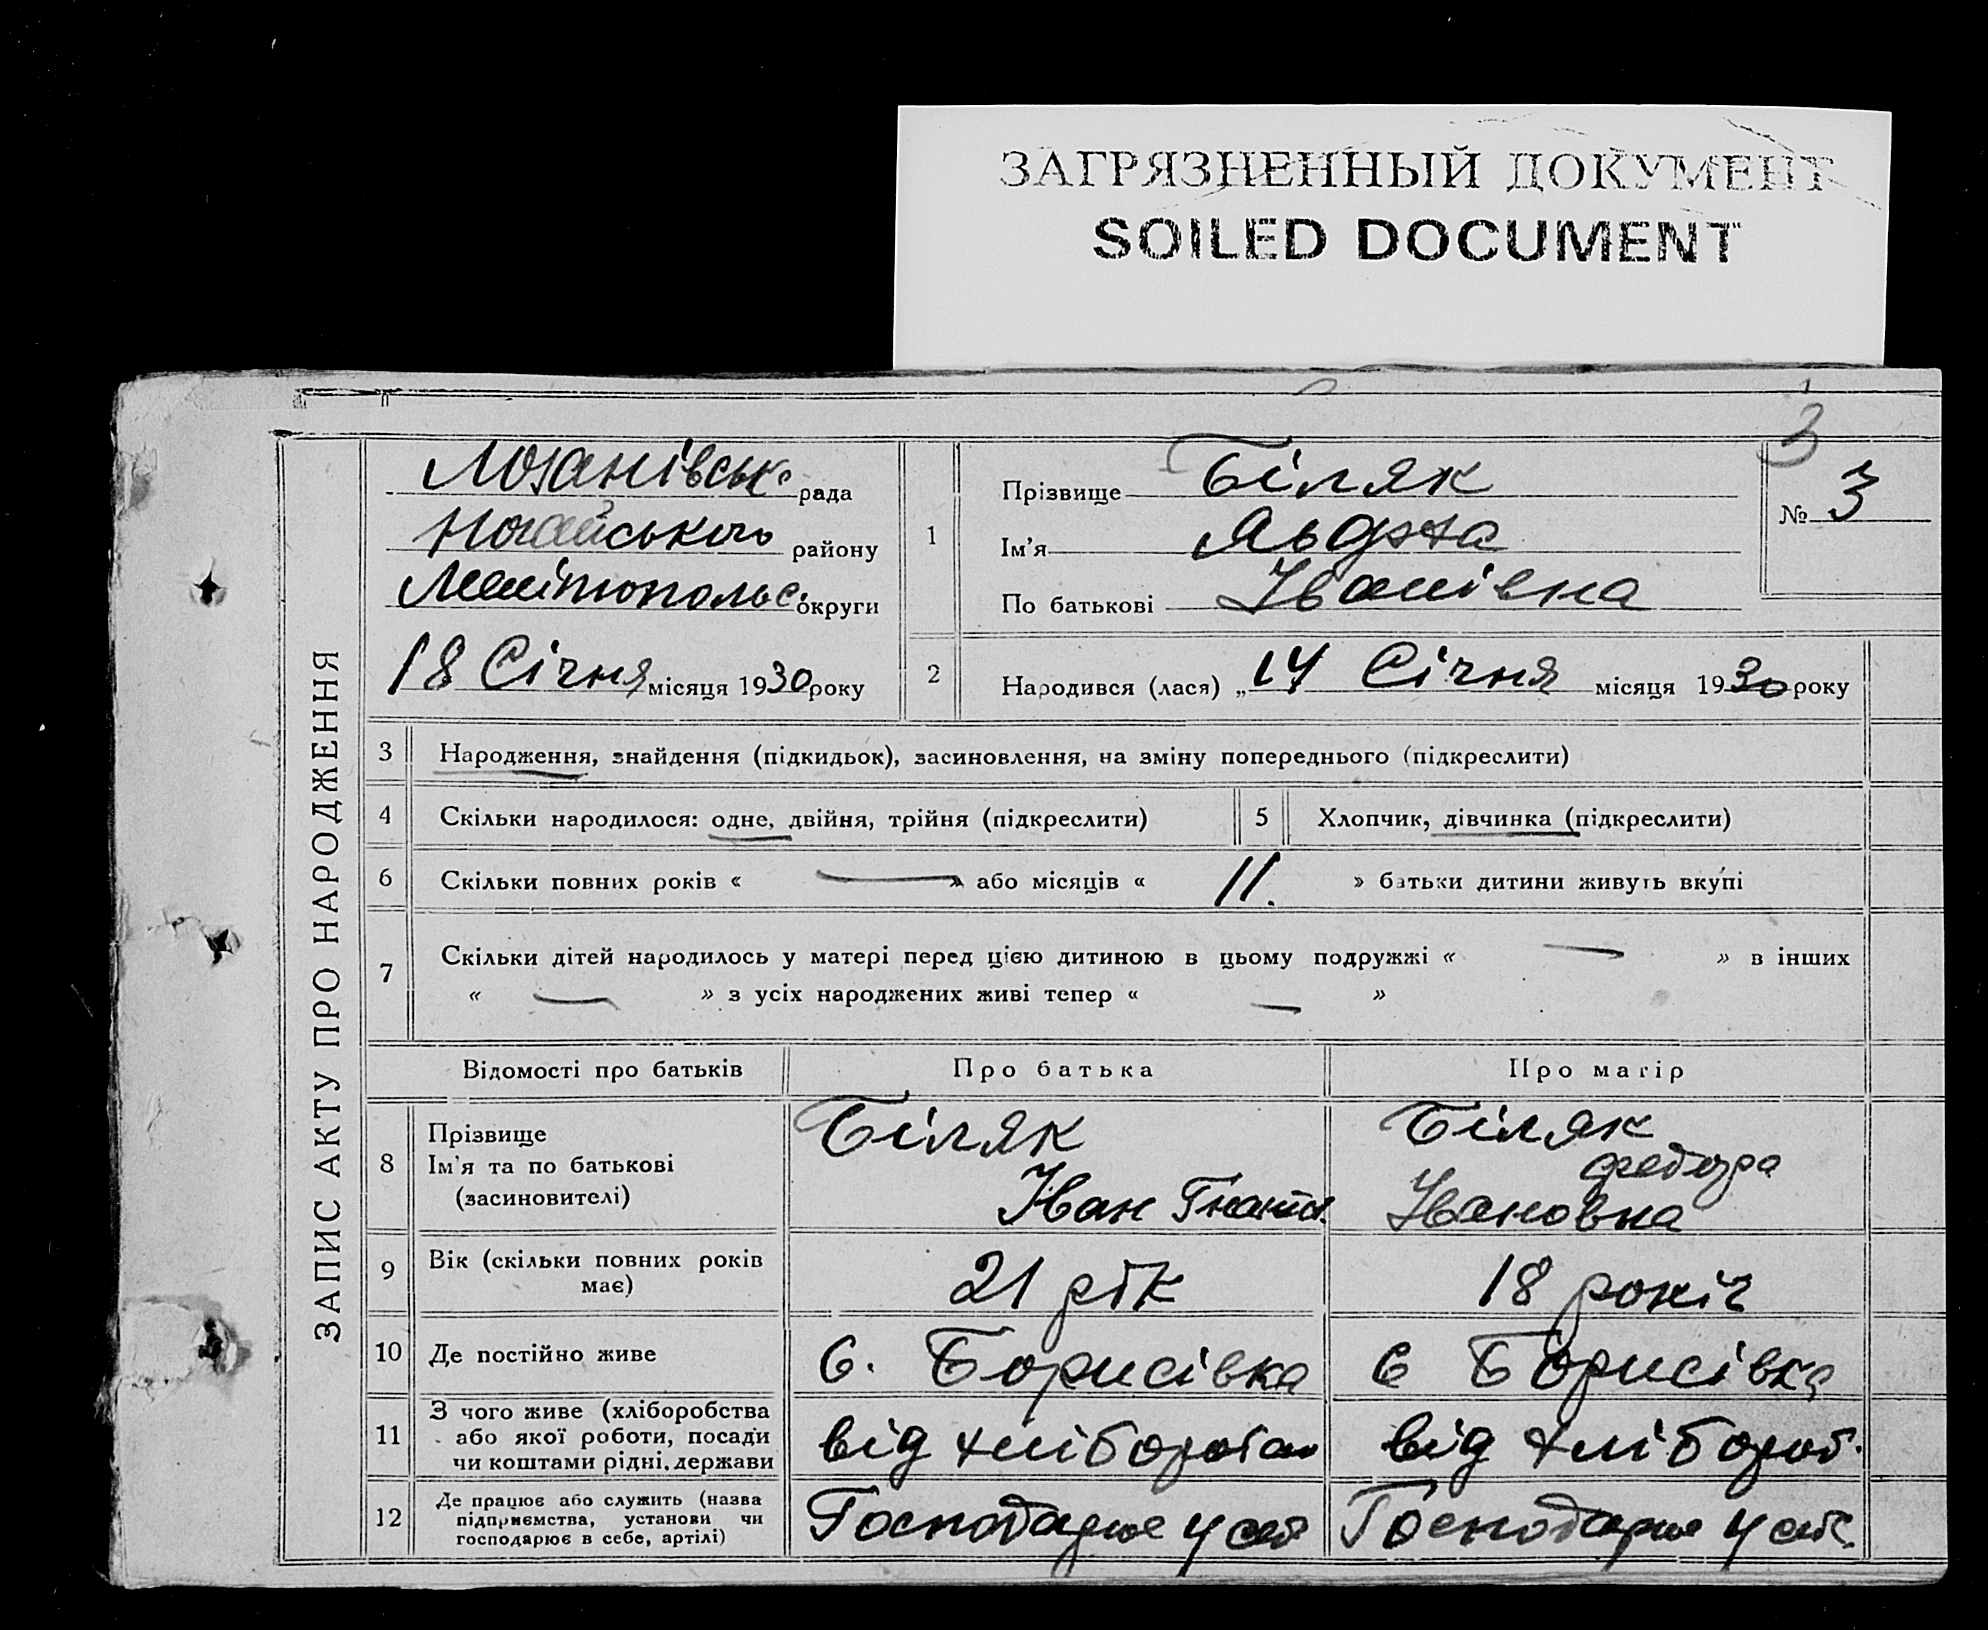 ЗАГРЯЗНЕННЫЙ ДОКУМЕНТ
SOILED DOCUMENT
3
ЗАПИС АКТУ ПРО НАРОДЖЕННЯ
Лозанівськ рада
Ногайського району
Мелітопольс округи
18 Січня місяця 1930 року
1
Прізвище Біляк
Ім'я
По батькові Іванівна
№ 3
2
Народився (лася) „14 Січня місяця 1930 року
3 Народження, знайдення (підкидьок), засиновлення, на зміну попереднього (підкреслити)
4 Скільки народилося: одне, двійня, трійня (підкреслити)
5 Хлопчик, дівчинка (підкреслити)
6 Скільки повних років « — » або місяців « 11. » батьки дитини живуть вкупі
7 Скільки дітей народилось у матері перед цією дитиною в цьому подружжі « — » в інших
« — » з усіх народжених живі тепер « — »
Відомості про батьків Про батька Про матір
8 Прізвище
Ім'я та по батькові
(засиновителі)
Біляк
Іван Гнатов.
Біляк
Федора
Івановна
9 Вік (скільки повних років
має)
21 рік
18 років
10 Де постійно живе
С. Борисівка
С Борисівка
11 З чого живе (хліборобства
або якої роботи, посади
чи коштами рідні, держави
від хліборобства
від хлібороб.
12 Де працює або служить (назва
підприємства, установи чи
господарює в себе, артілі)
Господарює у себе
Господарює у себе.